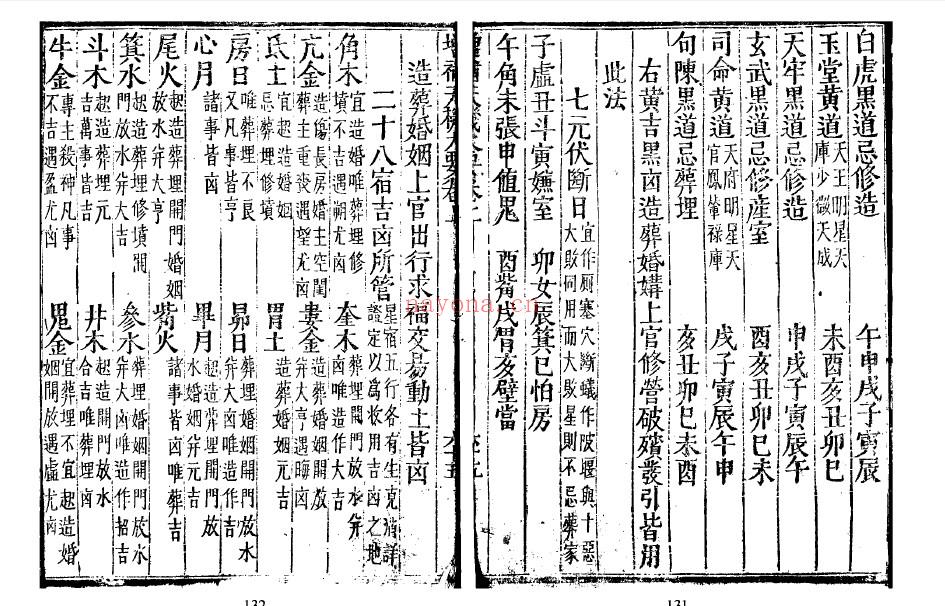 白虎黑道忌修造 午申戌子寅辰
玉堂黄道天王明星天庫少微天成 未酉亥丑卯巳
天牢黑道忌修造 申戌子寅辰午
玄武黑道忌修産室 酉亥丑卯巳未
司命黄道天府明星天官鳳輦禄庫 戌子寅辰午申
句陳黑道忌葬埋 亥丑卯巳未酉
右黄吉黑凶造葬婚媾上官修營破殯發引皆用
此法
七元伏斷日宜作厠塞穴斷蟻作陂堰與十惡大敗何用而大敗星則不忌葬家
子虚丑斗寅嫵室 卯女辰箕巳怕房
午角未張申值鬼 酉觜戌胃亥壁當
造葬婚姻上官出行求福交易動土皆凶
二十八宿吉凶所管星宿五行各有生克消詳
角木宜造婚唯葬埋修墳不吉遇朔尤凶 奎木葬埋開門放水并凶唯造作大吉
亢金造傷長房婚主空閨葬主重喪遇望尤凶 婁金造葬婚姻開放并大亨遇晦凶
氐土宜起造婚姻忌葬埋修墳 胃土造葬婚姻元吉
房日唯葬埋不良又凡事皆亨 昴日葬埋婚姻開門放水并大凶唯造作吉
心月諸事皆凶 畢月起造葬埋開門放水婚姻并元吉
尾火起造葬埋開門婚姻放水并大亨 觜火諸事皆凶唯葬吉
箕水起造葬埋修墳開門放水并大吉 參水葬埋婚姻開門放水并大凶唯造作招吉
斗木起造葬埋元吉萬事皆吉 井木起造開門放水合吉唯葬埋凶
牛金專主殺神凡事不吉遇盈尤凶 鬼金宜葬埋不宜起造婚姻開放遇虚尤凶
nayona.cn
132
131